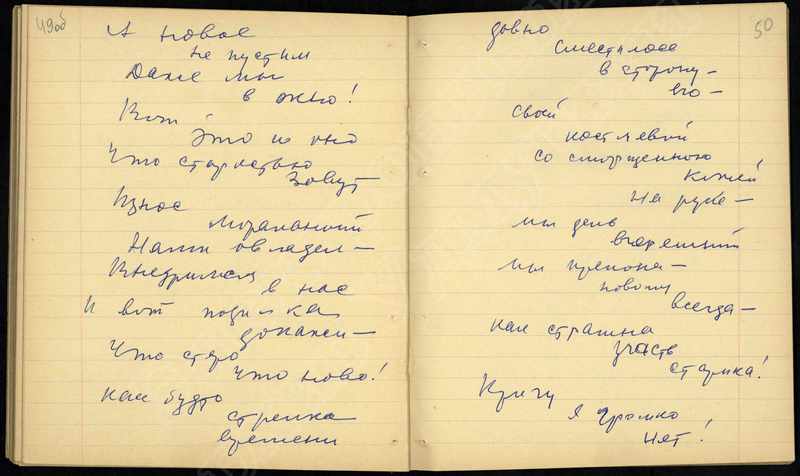 49об
А новое
не пустим
Даже мы
в окно!
Вот
Это и оно
Что старостью
Зовут
Износ
моральный
Нами овладел —
Внедрился
в нас
И вот поди ка
докажи —
Что старо
Что ново!
Как будто
стрелка
времени
50
давно
Сместилась
в сторону —
его —
Своей
костлявой
со сморщенною
кожей
На руке —
мы день
вчерешний
мы препона —
новому
всегда —
Как страшна
участь
старика!
Кричу
я громко
нет!